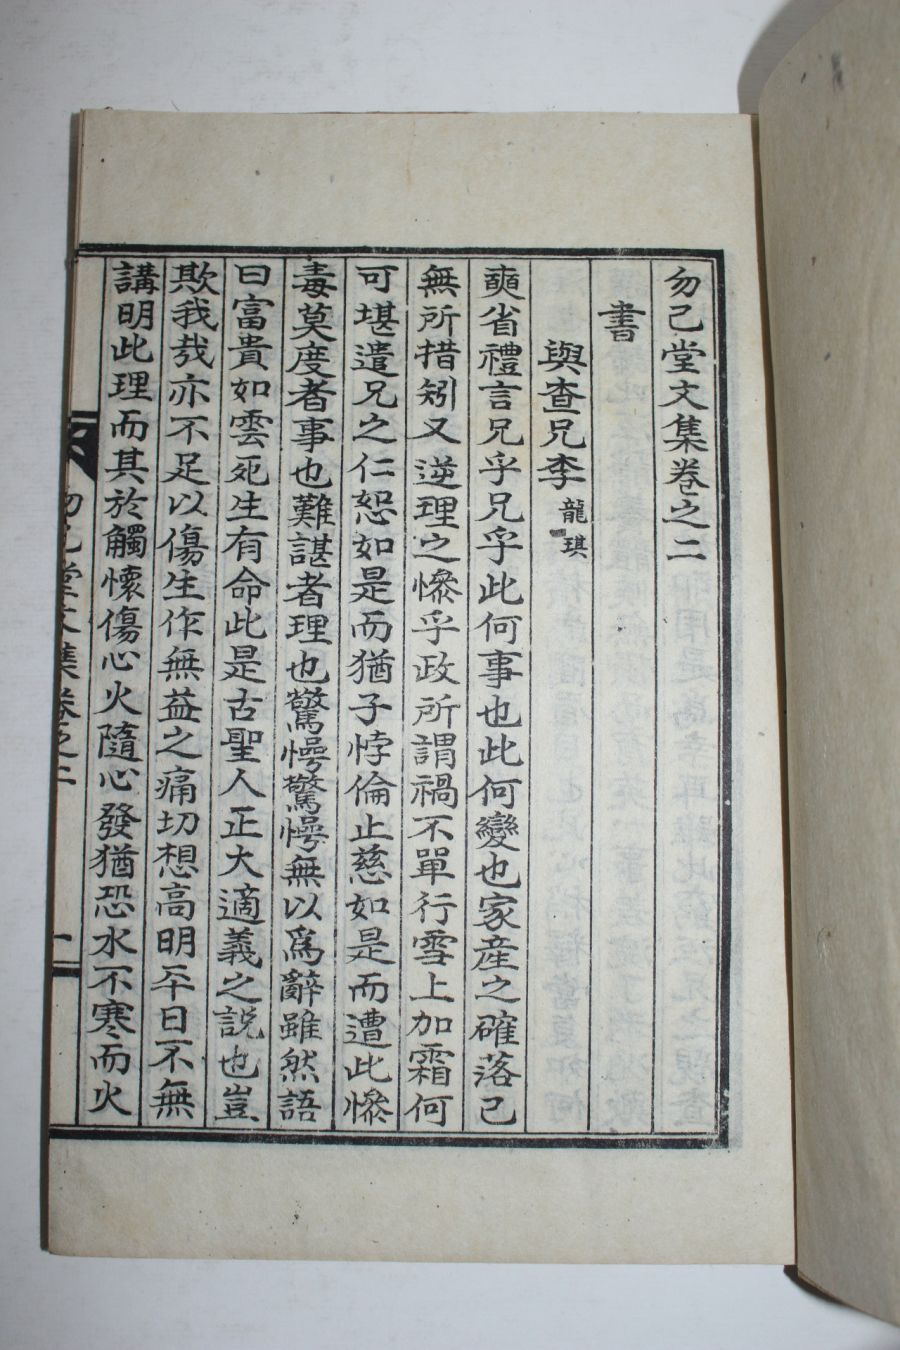 勿己堂文集卷之二
書
與查兄李龍琪
奭省禮言兄乎兄乎此何事也此何變也家産之確落已
無所措矧又逆理之慘乎政所謂禍不單行雪上加霜何
可堪遣兄之仁恕如是而猶子悖倫止慈如是而遭此慘
毒莫度者事也難諶者理也驚愕驚愕無以爲辭雖然語
曰富貴如雲死生有命此是古聖人正大適義之說也豈
欺我哉亦不足以傷生作無益之痛切想高明平日不無
講明此理而其於觸懷傷心火隨心發猶恐水不寒而火
勿己堂文集卷之二
一